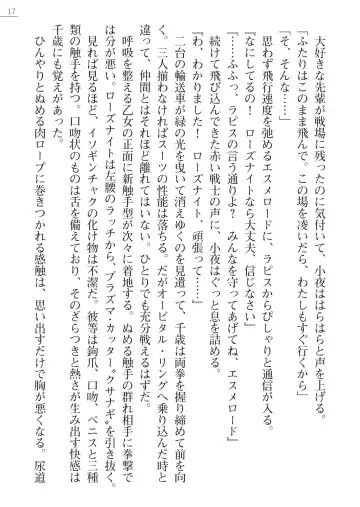 17
大好きな先輩が戦場に残ったのに気付いて、小夜ははらはらと声を上げる。
『ふたりはこのまま飛んで。この場を凌いだら、わたしもすぐ行くから』
『そ、そんな……』
思わず飛行速度を弛めるエスメロードに、ラピスからぴしゃりと通信が入る。
『なにしてるの！　ローズナイトなら大丈夫、信じなさい』
『……ふふっ、ラピスの言う通りよ？　みんなを守ってあげてね、エスメロード』
続けて飛び込んできた赤い戦士の声に、小夜はぐっと息を詰める。
『わ、わかりました！　ローズナイト、頑張って……』
二台の輸送車が緑の光を曳いて消えゆくのを見遣って、千歳は両拳を握り締めて前を向
く。三人揃わなければスーツの性能は落ちる。だがオービタル・リングへ乗り込んだ時と
違って、仲間とはそれほど離れてはいない。ひとりでも充分戦えるはずだ。
呼吸を整える乙女の正面に新触手型が次々に着地する。ぬめる触手の群れ相手に拳撃で
は分が悪い。ローズナイトは左腰のラッチから、プラズマ・カッター〝クサナギ〟を引き抜く。
見れば見るほど、イソギンチャクの化け物は不潔だ。彼等は鉤爪、口吻、ペニスと三種
類の触手を持つ。口吻状のものは舌を備えており、そのざらつきと熱さが生み出す快感は
千歳にも覚えがあった。
ひんやりとぬめる肉ロープに巻きつかれる感触は、思い出すだけで胸が悪くなる。尿道